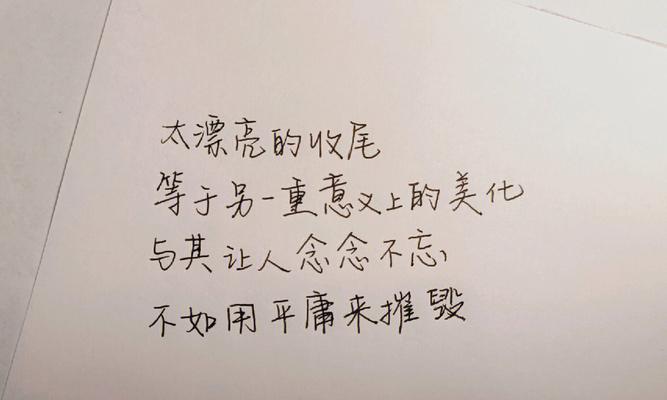 太漂亮的收尾
等于另一重意义上的美化
与其让人念念不忘,
不如用平庸来摧毁